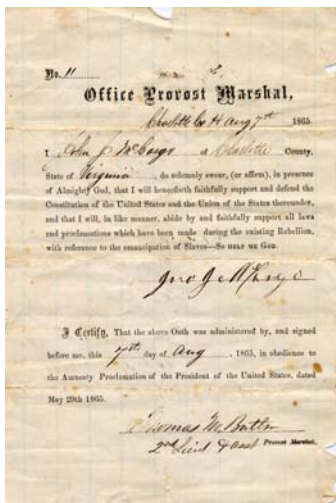 No. 11
Office Provost Marshal,
Charlotte Co H Aug 7th 1865
I John J McCargo of Charlotte County,
State of Virginia do solemnly swear, (or affirm), in presence
of Almighty God, that I will henceforth faithfully support and defend the
Constitution of the United States and the Union of the States thereunder,
and that I will, in like manner, abide by and faithfully support all laws
and proclamations which have been made during the existing Rebellion,
with reference to the emancipation of Slaves—So HELP ME GOD.
Jno J McCargo
I Certify, That the above Oath was administered by, and signed
before me, this 7th day of Aug , 1865, in obedience to
the Amnesty Proclamation of the President of the United States, dated
May 29th 1865.
Thomas M. Butler
2nd Lieut & asst Provost Marshal.